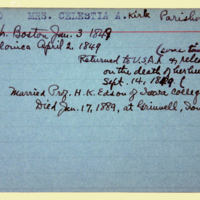 MRS. CELESTIA A. Kirk Parisho
Boston Jan. 3 1849
lonica April 2, 1849 (some tim
Returned to U.S.A. & rele
on the death of her hus
Sept. 14, 18
Married Prof. H.K. Edson of Iowa Colleg
Died Jan. 17, 1889, at Grinnell, Iow